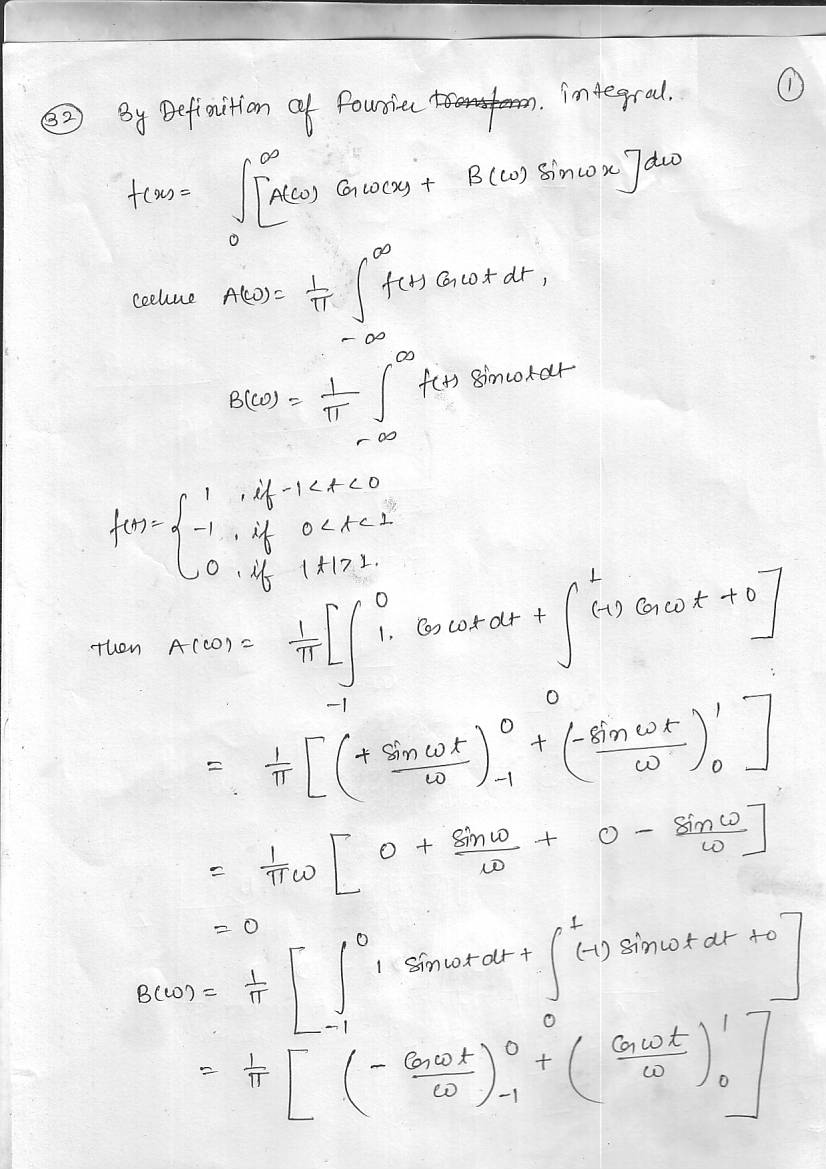 ①
㉜ By Definition of Fourier transform. integral.
f(x) = ∫₀^∞ [A(ω) cos ω(x) + B(ω) sin ωx] dω
where A(ω) = 1/π ∫_{-∞}^{∞} f(t) cos ωt dt,
B(ω) = 1/π ∫_{-∞}^{∞} f(t) sin ωt dt
f(t) = { 1, if -1 < t < 0
-1, if 0 < t < 1
0, if |t| > 1.
Then A(ω) = 1/π [ ∫_{-1}^{0} 1. cos ωt dt + ∫_{0}^{1} (-1) cos ωt + 0 ]
= 1/π [ (+ sin ωt / ω)_{-1}^{0} + (- sin ωt / ω)_{0}^{1} ]
= 1/πω [ 0 + sin ω / ω + 0 - sin ω / ω ]
= 0
B(ω) = 1/π [ ∫_{-1}^{0} 1 sin ωt dt + ∫_{0}^{1} (-1) sin ωt dt + 0 ]
= 1/π [ (- cos ωt / ω)_{-1}^{0} + (cos ωt / ω)_{0}^{1} ]